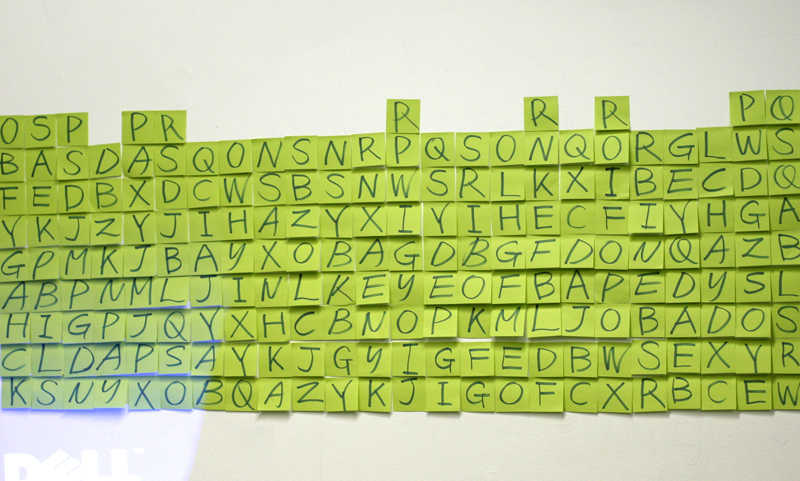 OSP PR R R R PQ
BASDASQONSNRPQSONQORGLWS
FEDBXDCWSBSNWSRLKXIBECDQ
YKJZYJIHAZYXIYIHECFIYHGA
GPMKJBAYXOBAGDBGFDONQAZB
ABPNMLJINLKEYEOFBAPEDYSL
HIGPJQYXHCBNOPKMLJOBADOS
CLDAPSAYKJGYIGFEDBWSEXYR
KSNYXOBQAZYKJIGOFCXRBCEW
DELL